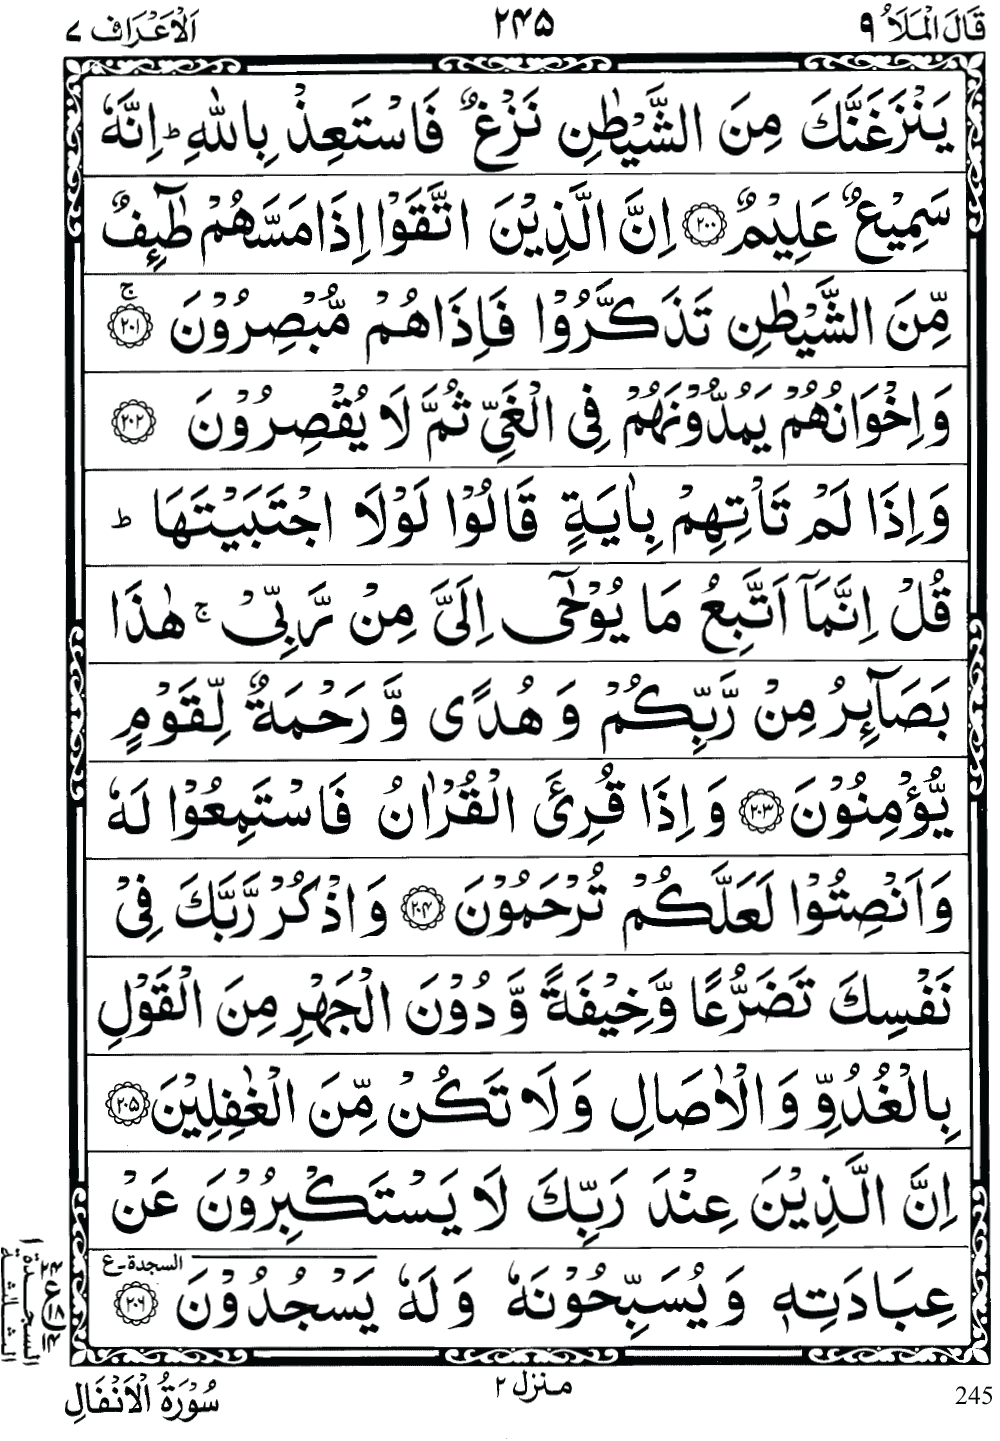 قَالَ الْمَلَاُ ٩
٢٤٥
اَلْاَعْرَاف ٧
يَنْزَغَنَّكَ مِنَ الشَّيْطٰنِ نَزْغٌ فَاسْتَعِذْ بِاللّٰهِ ؕ اِنَّهٗ
سَمِيْعٌ عَلِيْمٌ ﴿٢٠٠﴾ اِنَّ الَّذِيْنَ اتَّقَوْا اِذَا مَسَّهُمْ طٰٓئِفٌ
مِّنَ الشَّيْطٰنِ تَذَكَّرُوْا فَاِذَا هُمْ مُّبْصِرُوْنَ ﴿٢٠١﴾ ۚ
وَاِخْوَانُهُمْ يَمُدُّوْنَهُمْ فِي الْغَيِّ ثُمَّ لَا يُقْصِرُوْنَ ﴿٢٠٢﴾
وَاِذَا لَمْ تَاْتِهِمْ بِاٰيَةٍ قَالُوْا لَوْلَا اجْتَبَيْتَهَا ؕ
قُلْ اِنَّمَآ اَتَّبِعُ مَا يُوْحٰٓى اِلَيَّ مِنْ رَّبِّيْ ۚ هٰذَا
بَصَآئِرُ مِنْ رَّبِّكُمْ وَهُدًى وَّرَحْمَةٌ لِّقَوْمٍ
يُّؤْمِنُوْنَ ﴿٢٠٣﴾ وَاِذَا قُرِئَ الْقُرْاٰنُ فَاسْتَمِعُوْا لَهٗ
وَاَنْصِتُوْا لَعَلَّكُمْ تُرْحَمُوْنَ ﴿٢٠٤﴾ وَاذْكُرْ رَّبَّكَ فِيْ
نَفْسِكَ تَضَرُّعًا وَّخِيْفَةً وَّدُوْنَ الْجَهْرِ مِنَ الْقَوْلِ
بِالْغُدُوِّ وَالْاٰصَالِ وَلَا تَكُنْ مِّنَ الْغٰفِلِيْنَ ﴿٢٠٥﴾
اِنَّ الَّذِيْنَ عِنْدَ رَبِّكَ لَا يَسْتَكْبِرُوْنَ عَنْ
عِبَادَتِهٖ وَيُسَبِّحُوْنَهٗ وَلَهٗ يَسْجُدُوْنَ ﴿٢٠٦﴾ السجدة-ع
السجدة ١
منزل ٢
سُوْرَةُ الْاَنْفَالِ
245